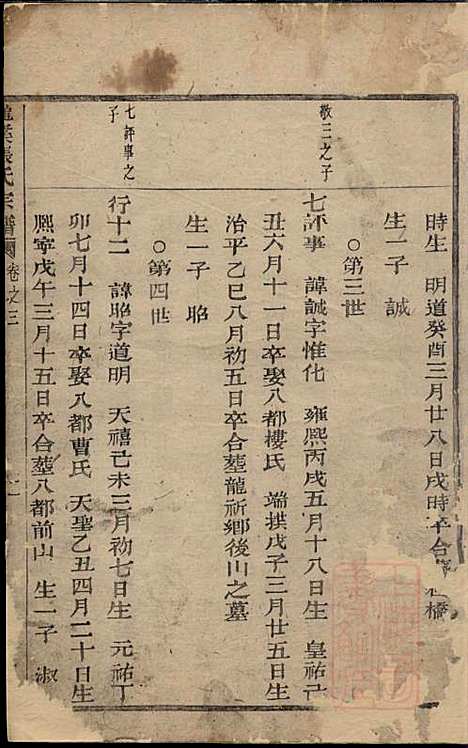 時生　明道癸酉三月廿八日戌時卒合　橋
生一子　誠
○第三世
敬三之子
七評事　諱誠字惟化　雍熙丙戌五月十八日生　皇祐己
丑六月十一日卒娶八都樓氏　端拱戊子三月廿五日生
治平乙巳八月初五日卒合塟龍祈鄉後山之墓
生一子　昭
○第四世
七評事之子
行十二　諱昭字道明　天禧己未三月初七日生　元祐丁
卯七月十四日卒娶八都曹氏　天聖乙丑四月二十日生
熙寧戊午三月十五日卒合塟八都前山　生一子　淑
張氏宗譜　卷之三